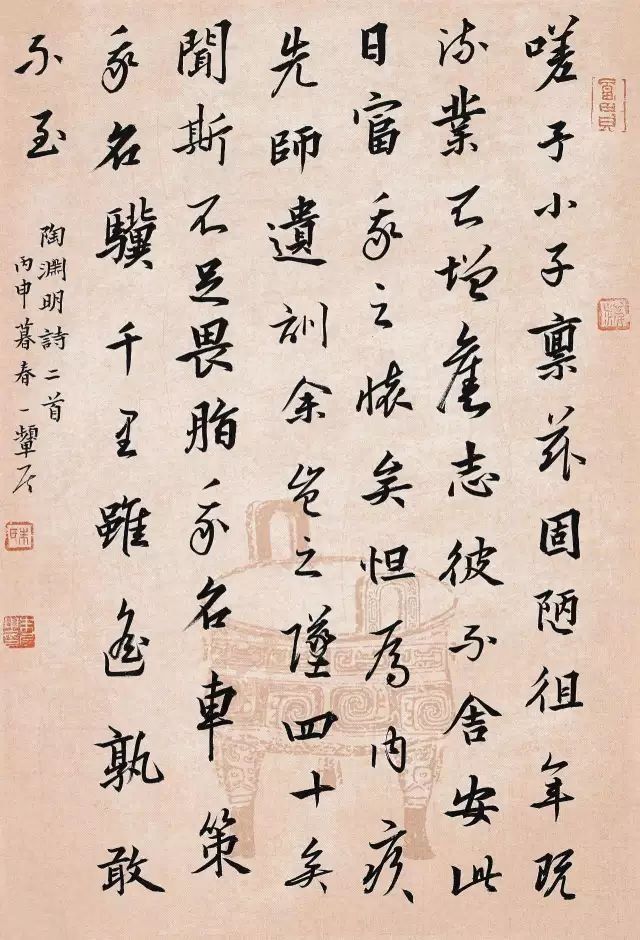 嗟予小子稟茲固陋徂年既
流業不增舊志彼不舍安此
日富我之懷矣怛焉內疚
先師遺訓余豈之墜四十無
聞斯不足畏脂我名車策
我名驥千里雖遙孰敢
不至
陶淵明詩二首
丙申暮春一